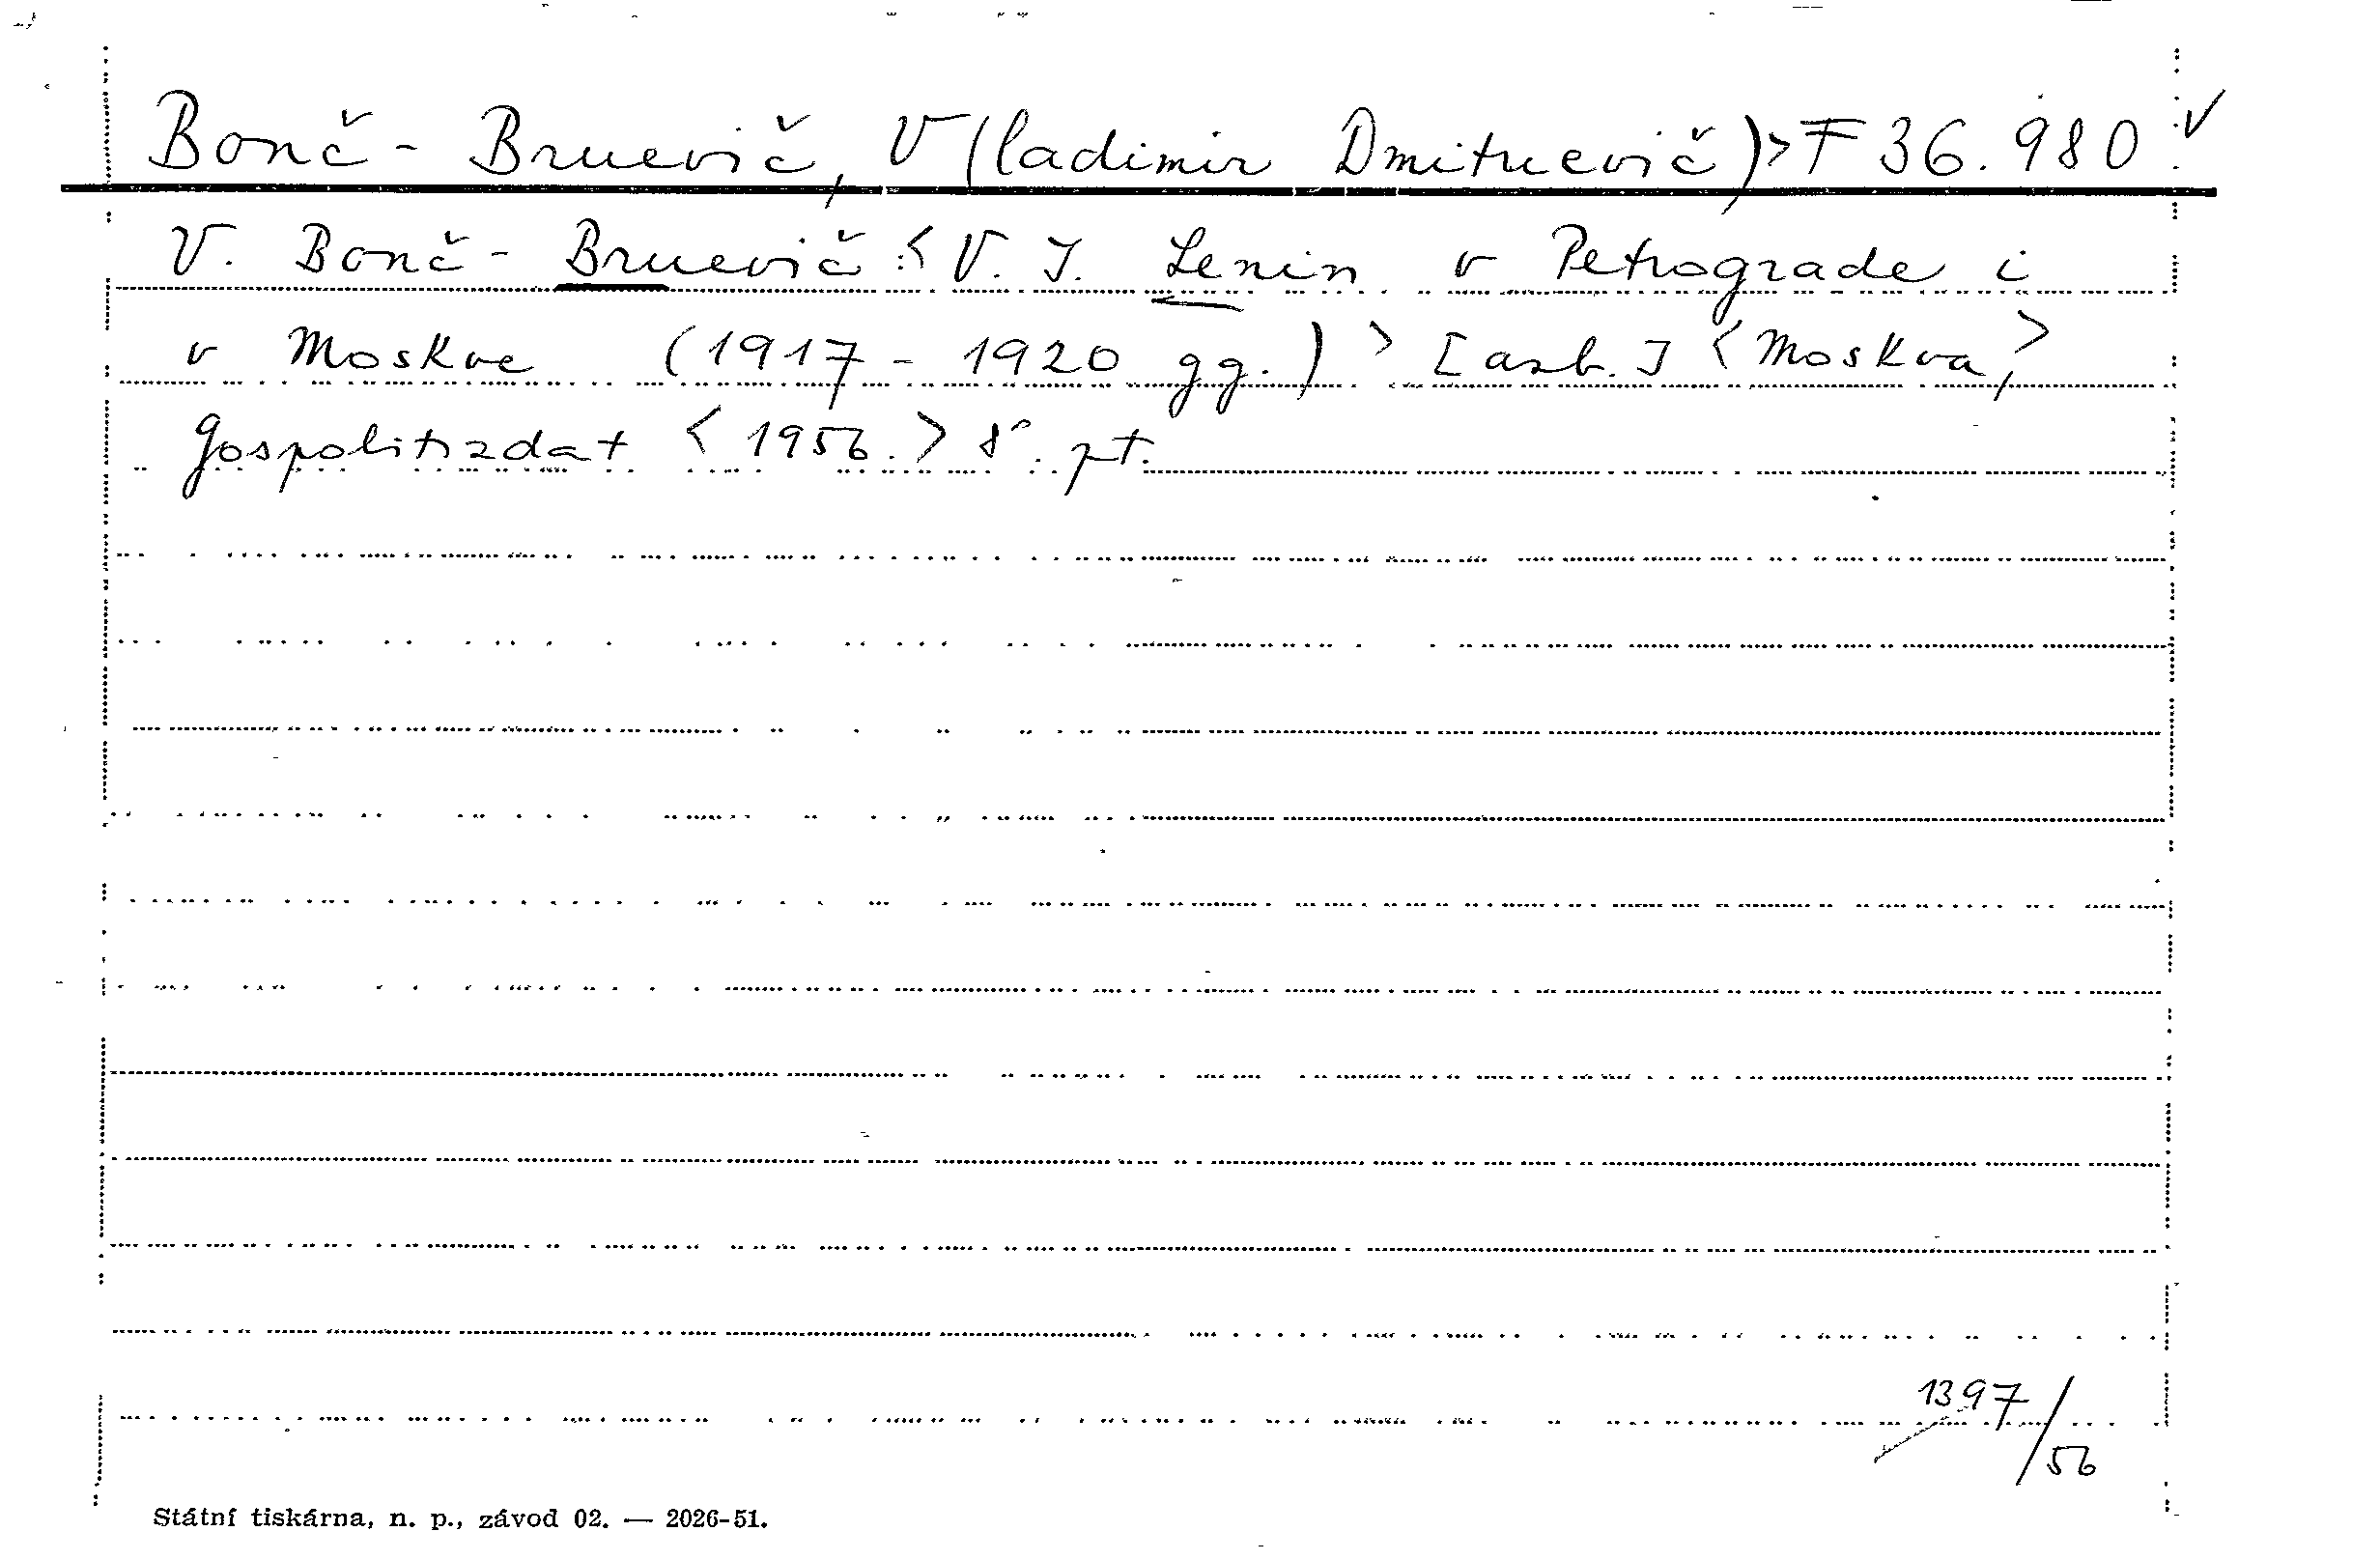 Bonč-Bruevič, V(ladimir Dmitrievič)> F 36.980 ✓
V. Bonč-Bruevič: <V. I. Lenin v Petrograde i
v Moskve (1917-1920 gg.)> [azb.] <Moskva,>
Gospolitizdat <1956.> 8° pt.
1397/56
Státní tiskárna, n. p., závod 02. — 2026-51.